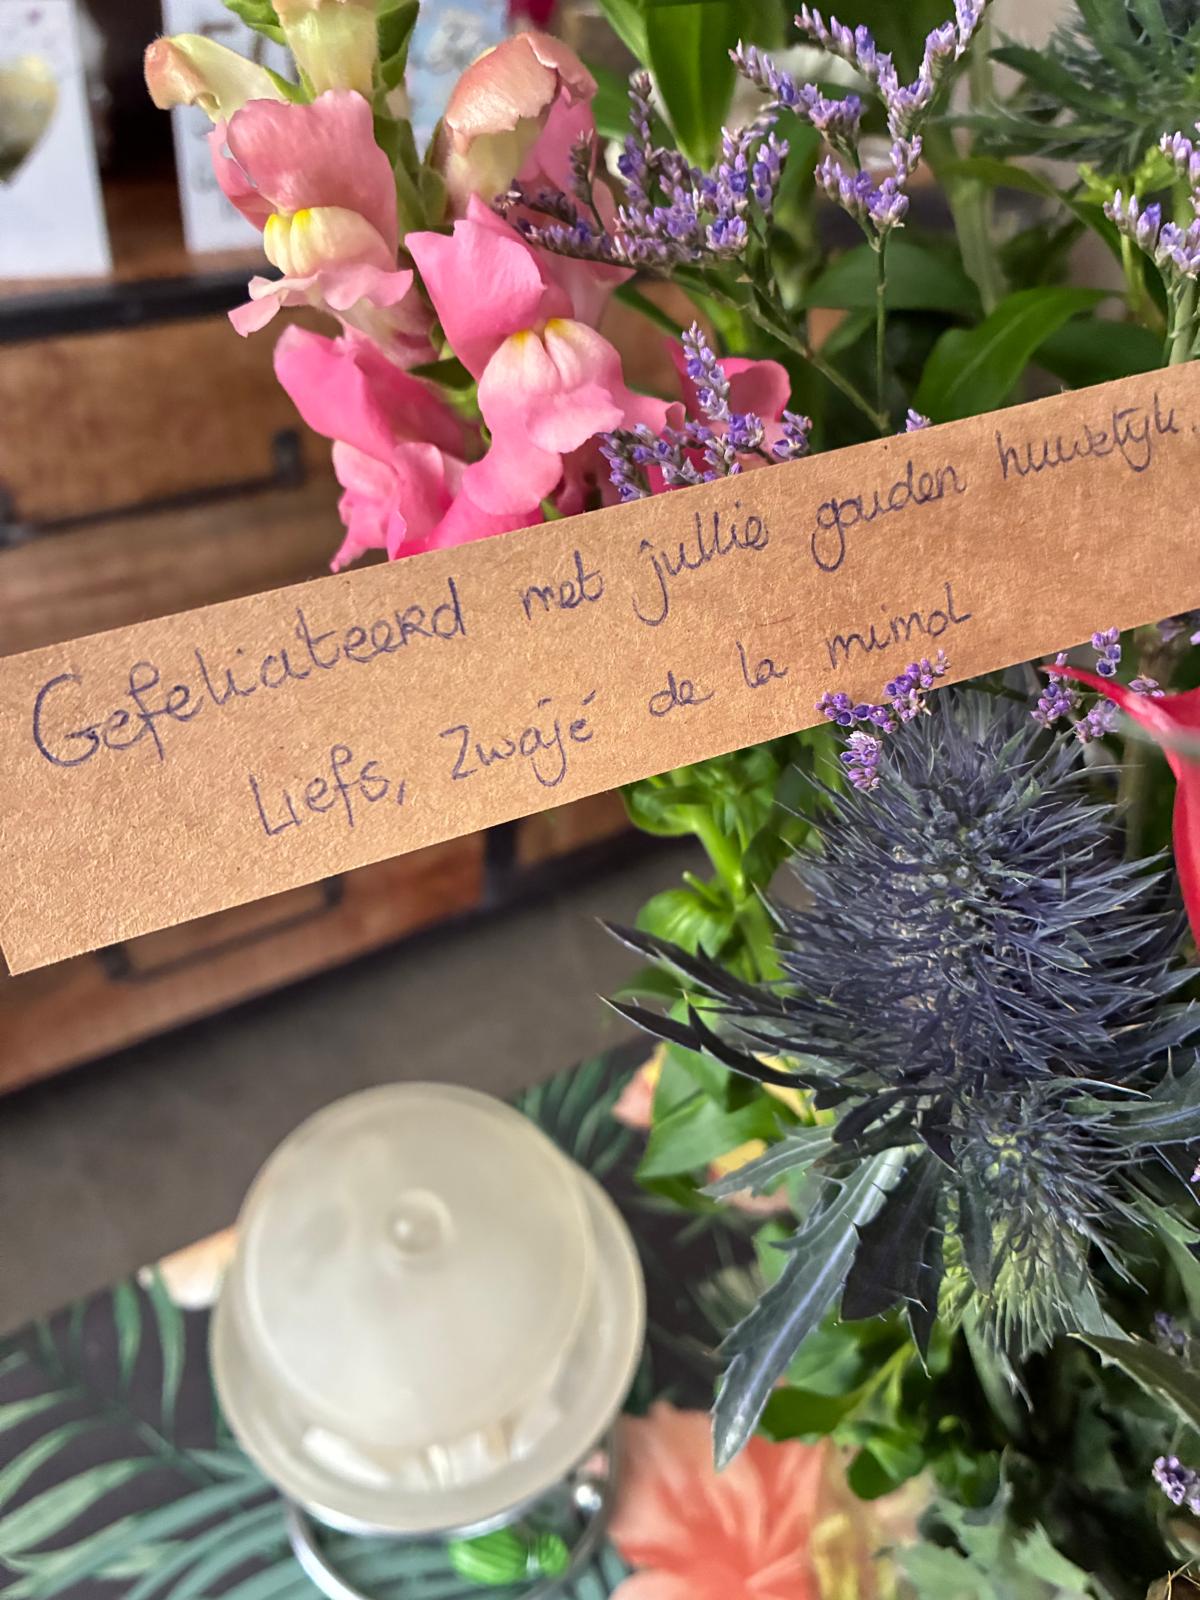 Gefeliciteerd met jullie gouden huwelijk.
Liefs, Zwajé de la mimol